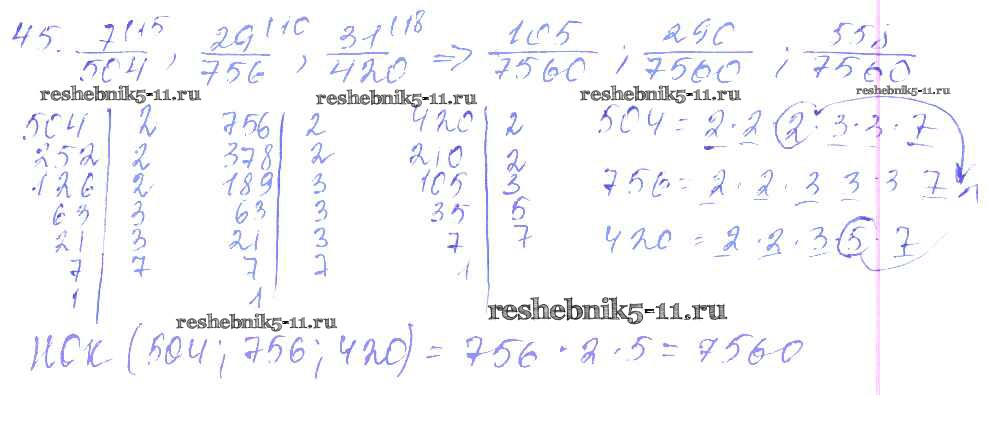 45. 7|15/504, 29|10/756, 31|18/420 => 105/7560; 290/7560; 558/7560
reshebnik5-11.ru reshebnik5-11.ru reshebnik5-11.ru reshebnik5-11.ru
504 | 2 756 | 2 420 | 2 504 = 2 · 2 · 2 · 3 · 3 · 7
252 | 2 378 | 2 210 | 2
126 | 2 189 | 3 105 | 3 756 = 2 · 2 · 3 3 · 3 7
63 | 3 63 | 3 35 | 5
21 | 3 21 | 3 7 | 7 420 = 2 · 2 · 3 · 5 · 7
7 | 7 7 | 7 1
1 1
reshebnik5-11.ru reshebnik5-11.ru
НОК (504; 756; 420) = 756 · 2 · 5 = 7560